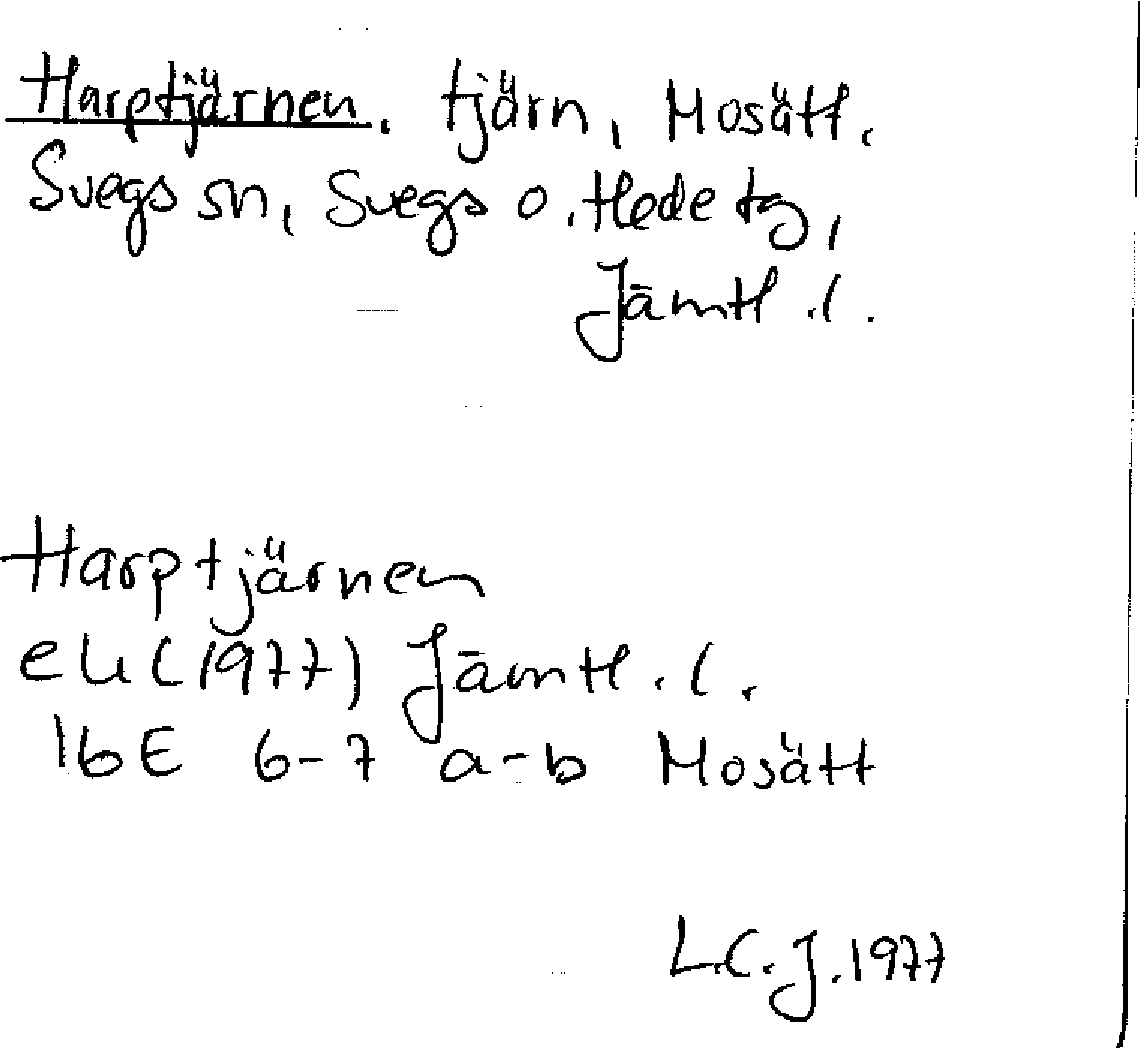 Harptjärnen. tjärn, Mosätt.
Svegs sn, Svegs o. Hede tg,
Jämtl. l.
Harptjärnen
ek (1977) Jämtl. l.
16E 6-7 a-b Mosätt
L.C.J. 1977